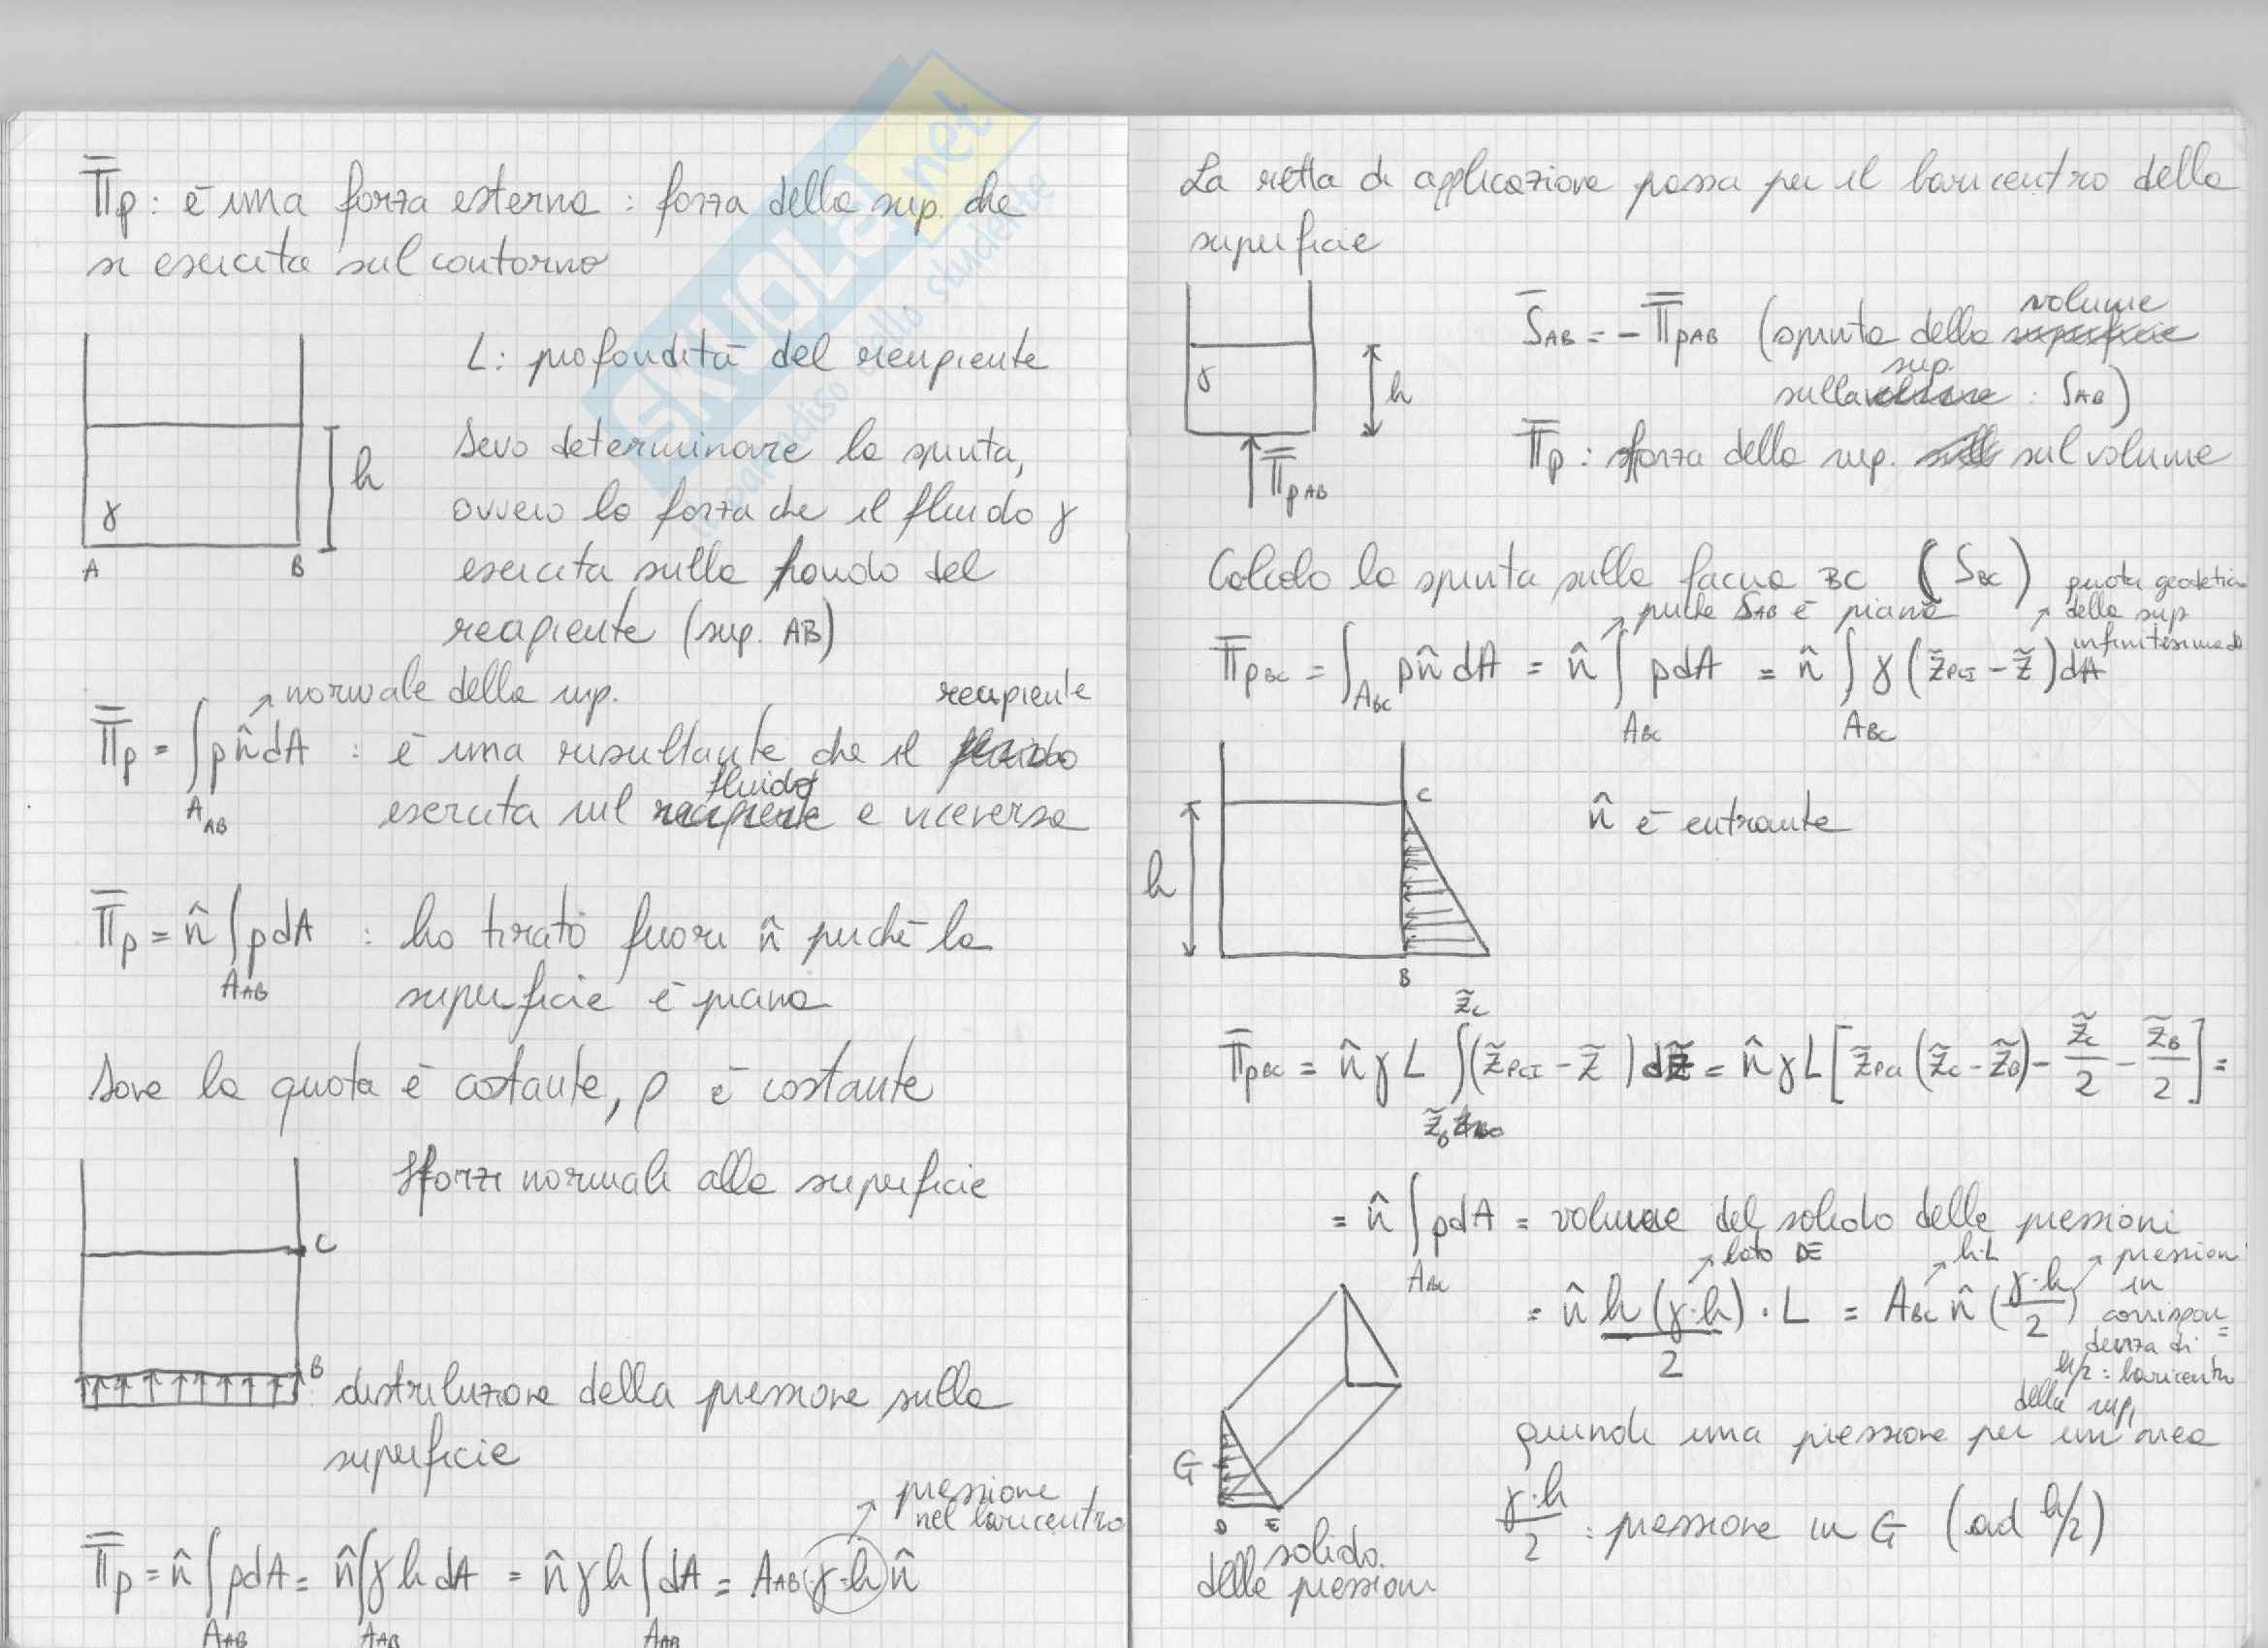 Π̿p : è una forza esterna : forza della sup. che
si esercita sul contorno
L: profondità del recipiente
Devo determinare la spinta,
ovvero la forza che il fluido γ
esercita sulla fondo del
recipiente (sup. AB)
h
γ
A B
normale della sup.
recipiente
Π̿p = ∫ p n̂ dA : è una risultante che il fluido
A_AB
fluido
esercita sul recipiente e viceversa
Π̿p = n̂ ∫ p dA : ho tirato fuori n̂ perché la
A_AB
superficie è piana
Dove la quota è costante, p è costante
Sforzi normali alla superficie
C
B
: distribuzione della pressione sulla
superficie
pressione
nel baricentro
Π̿p = n̂ ∫ p dA = n̂ ∫ γ h dA = n̂ γ h ∫ dA = A_AB (γ·h) n̂
A_AB A_AB A_AB
La retta di applicazione passa per il baricentro della
superficie
volume
S̄_AB = - Π̿p_AB (spinta della superficie
sup.
sulla volume : S_AB)
γ
h
Π̿p_AB
Π̿p : sforza della sup. sul volume
Calcolo la spinta sulla faccia BC (S_BC)
quota geodetica
della sup
infinitesima
perché S_AB è piana
Π̿p_BC = ∫ p n̂ dA = n̂ ∫ p dA = n̂ ∫ γ (z̃_PCI - z̃) dA
A_BC A_BC A_BC
C
n̂ è entrante
h
B
Π̿p_BC = n̂ γ L ∫ (z̃_PCI - z̃) dz̃ = n̂ γ L [z̃_PCI (z̃_C - z̃_B) - z̃_C/2 - z̃_B/2] =
z̃_C
z̃_B
= n̂ ∫ p dA = volume del solido delle pressioni
A_BC
lato DE
h·L
pressione
in
corrispon=
denza di
h/2 : baricentro
della sup.
= n̂ h (γ·h)/2 · L = A_BC n̂ (γ·h/2)
quindi una pressione per un'area
γ·h/2 : pressione in G (ad h/2)
G
D E
solido
delle pressioni
SKUOLA.net
il paradiso dello studente